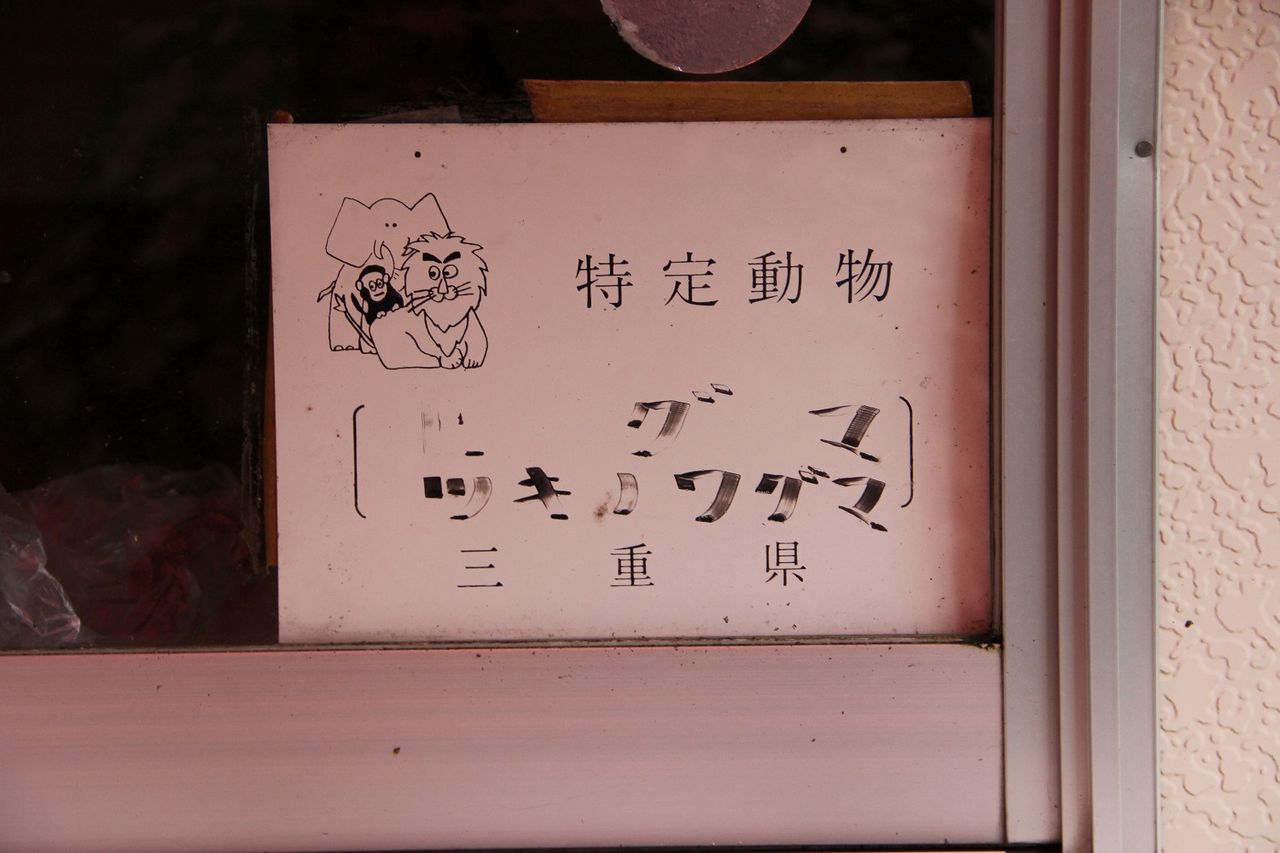 特定動物
ヒグマ
ツキノワグマ
三重県